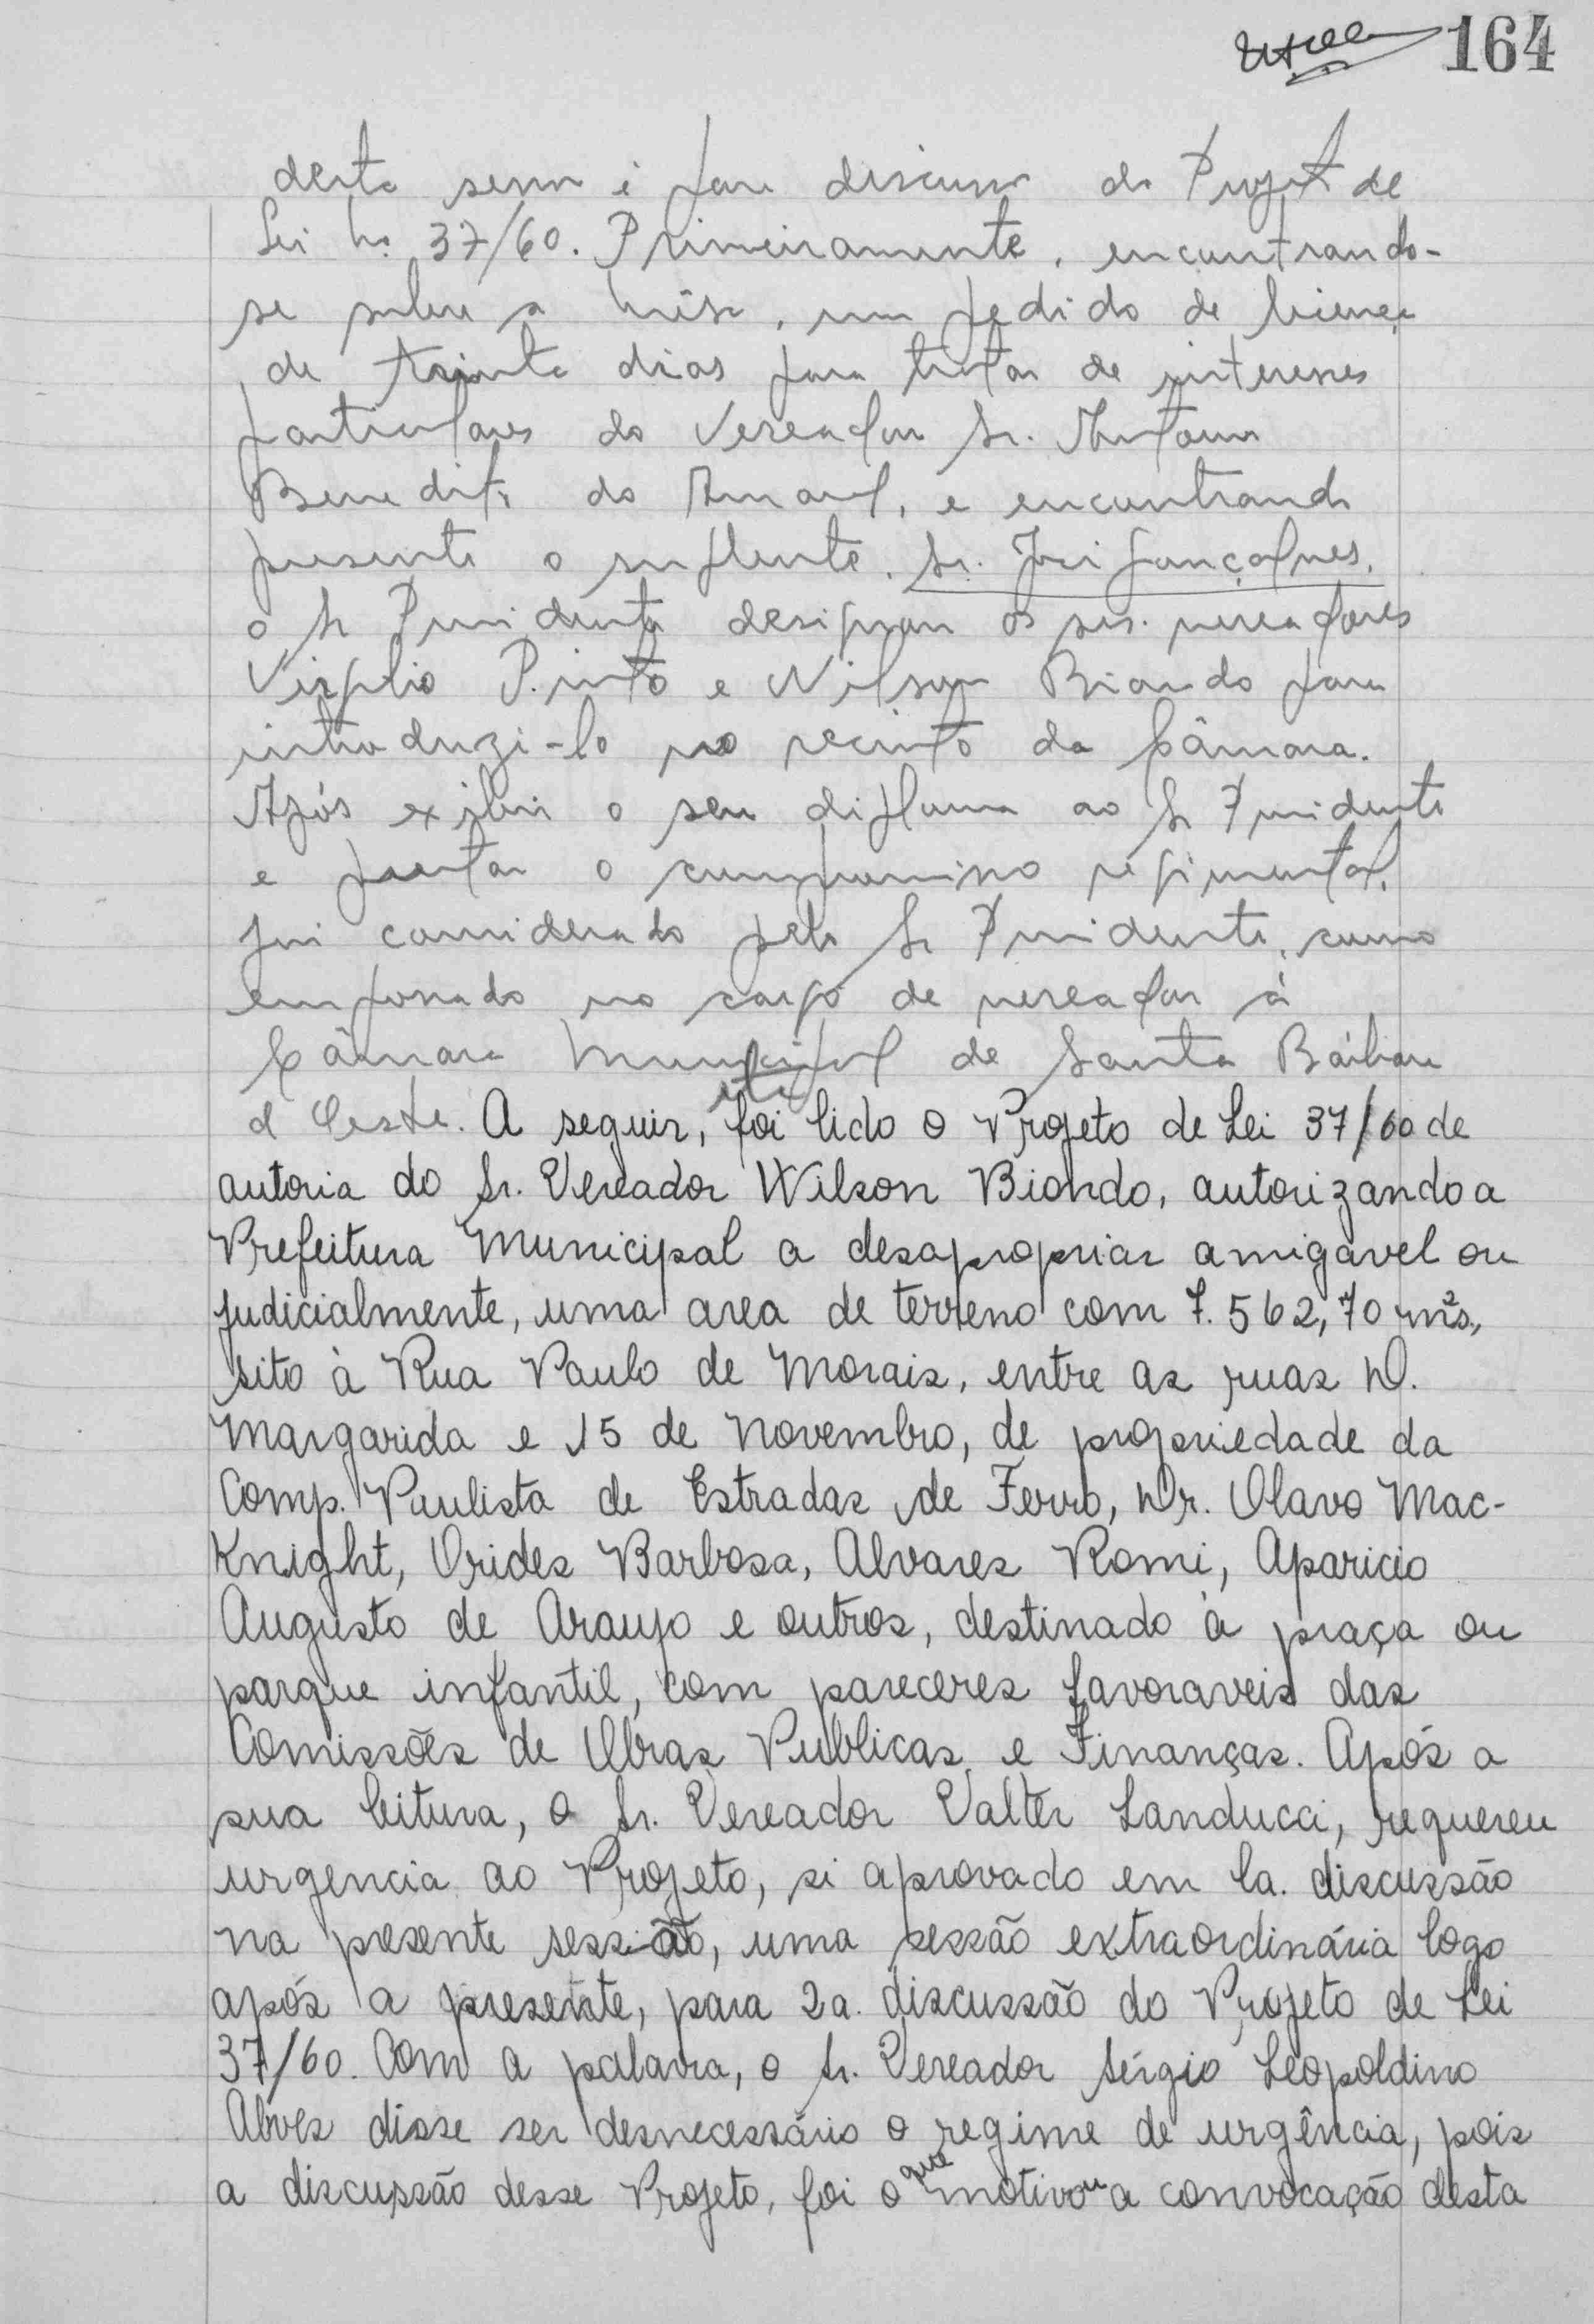 164
desta sessão é para discussão do Projeto de
Lei nº 37/60. Primeiramente, encontrando-
se sobre a mêsa, um pedido de licença
de trinta dias para tratar de interesses
particulares do Vereador Sr. Antonio
Benedito do Amaral, e encontrando
presente o suplente, Sr. José Gonçalves,
o Sr Presidente designou os srs. vereadores
Virgilio Pinto e Wilson Biondo para
introduzi-lo no recinto da Câmara.
Após exibir o seu diploma ao Sr Presidente
e prestar o compromisso regimental,
foi considerado pelo Sr Presidente, como
empossado no cargo de vereador à
Câmara Municipal de Santa Bárbara
d'Oeste. A seguir, foi lido o Projeto de Lei 37/60 de
autoria do Sr. Vereador Wilson Biondo, autorizando a
Prefeitura Municipal a desapropriar amigavel ou
judicialmente, uma area de terreno com 7.562,70 m²s.,
sito à Rua Paulo de Morais, entre as ruas D.
Margarida e 15 de Novembro, de propriedade da
Comp. Paulista de Estradas de Ferro, Dr. Olavo Mac-
Knight, Orides Barbosa, Alvares Romi, Aparicio
Augusto de Araujo e outros, destinado à praça ou
parque infantil, com pareceres favoraveis das
Comissões de Obras Publicas e Finanças. Após a
sua leitura, o Sr. Vereador Valter Landucci, requereu
urgencia ao Projeto, si aprovado em 1a. discussão
na presente sessão, uma sessão extraordinária logo
após a presente, para 2a. discussão do Projeto de Lei
37/60. Com a palavra, o Sr. Vereador Sérgio Leopoldino
Alves disse ser desnecessário o regime de urgência, pois
a discussão desse Projeto, foi o que motivou a convocação desta